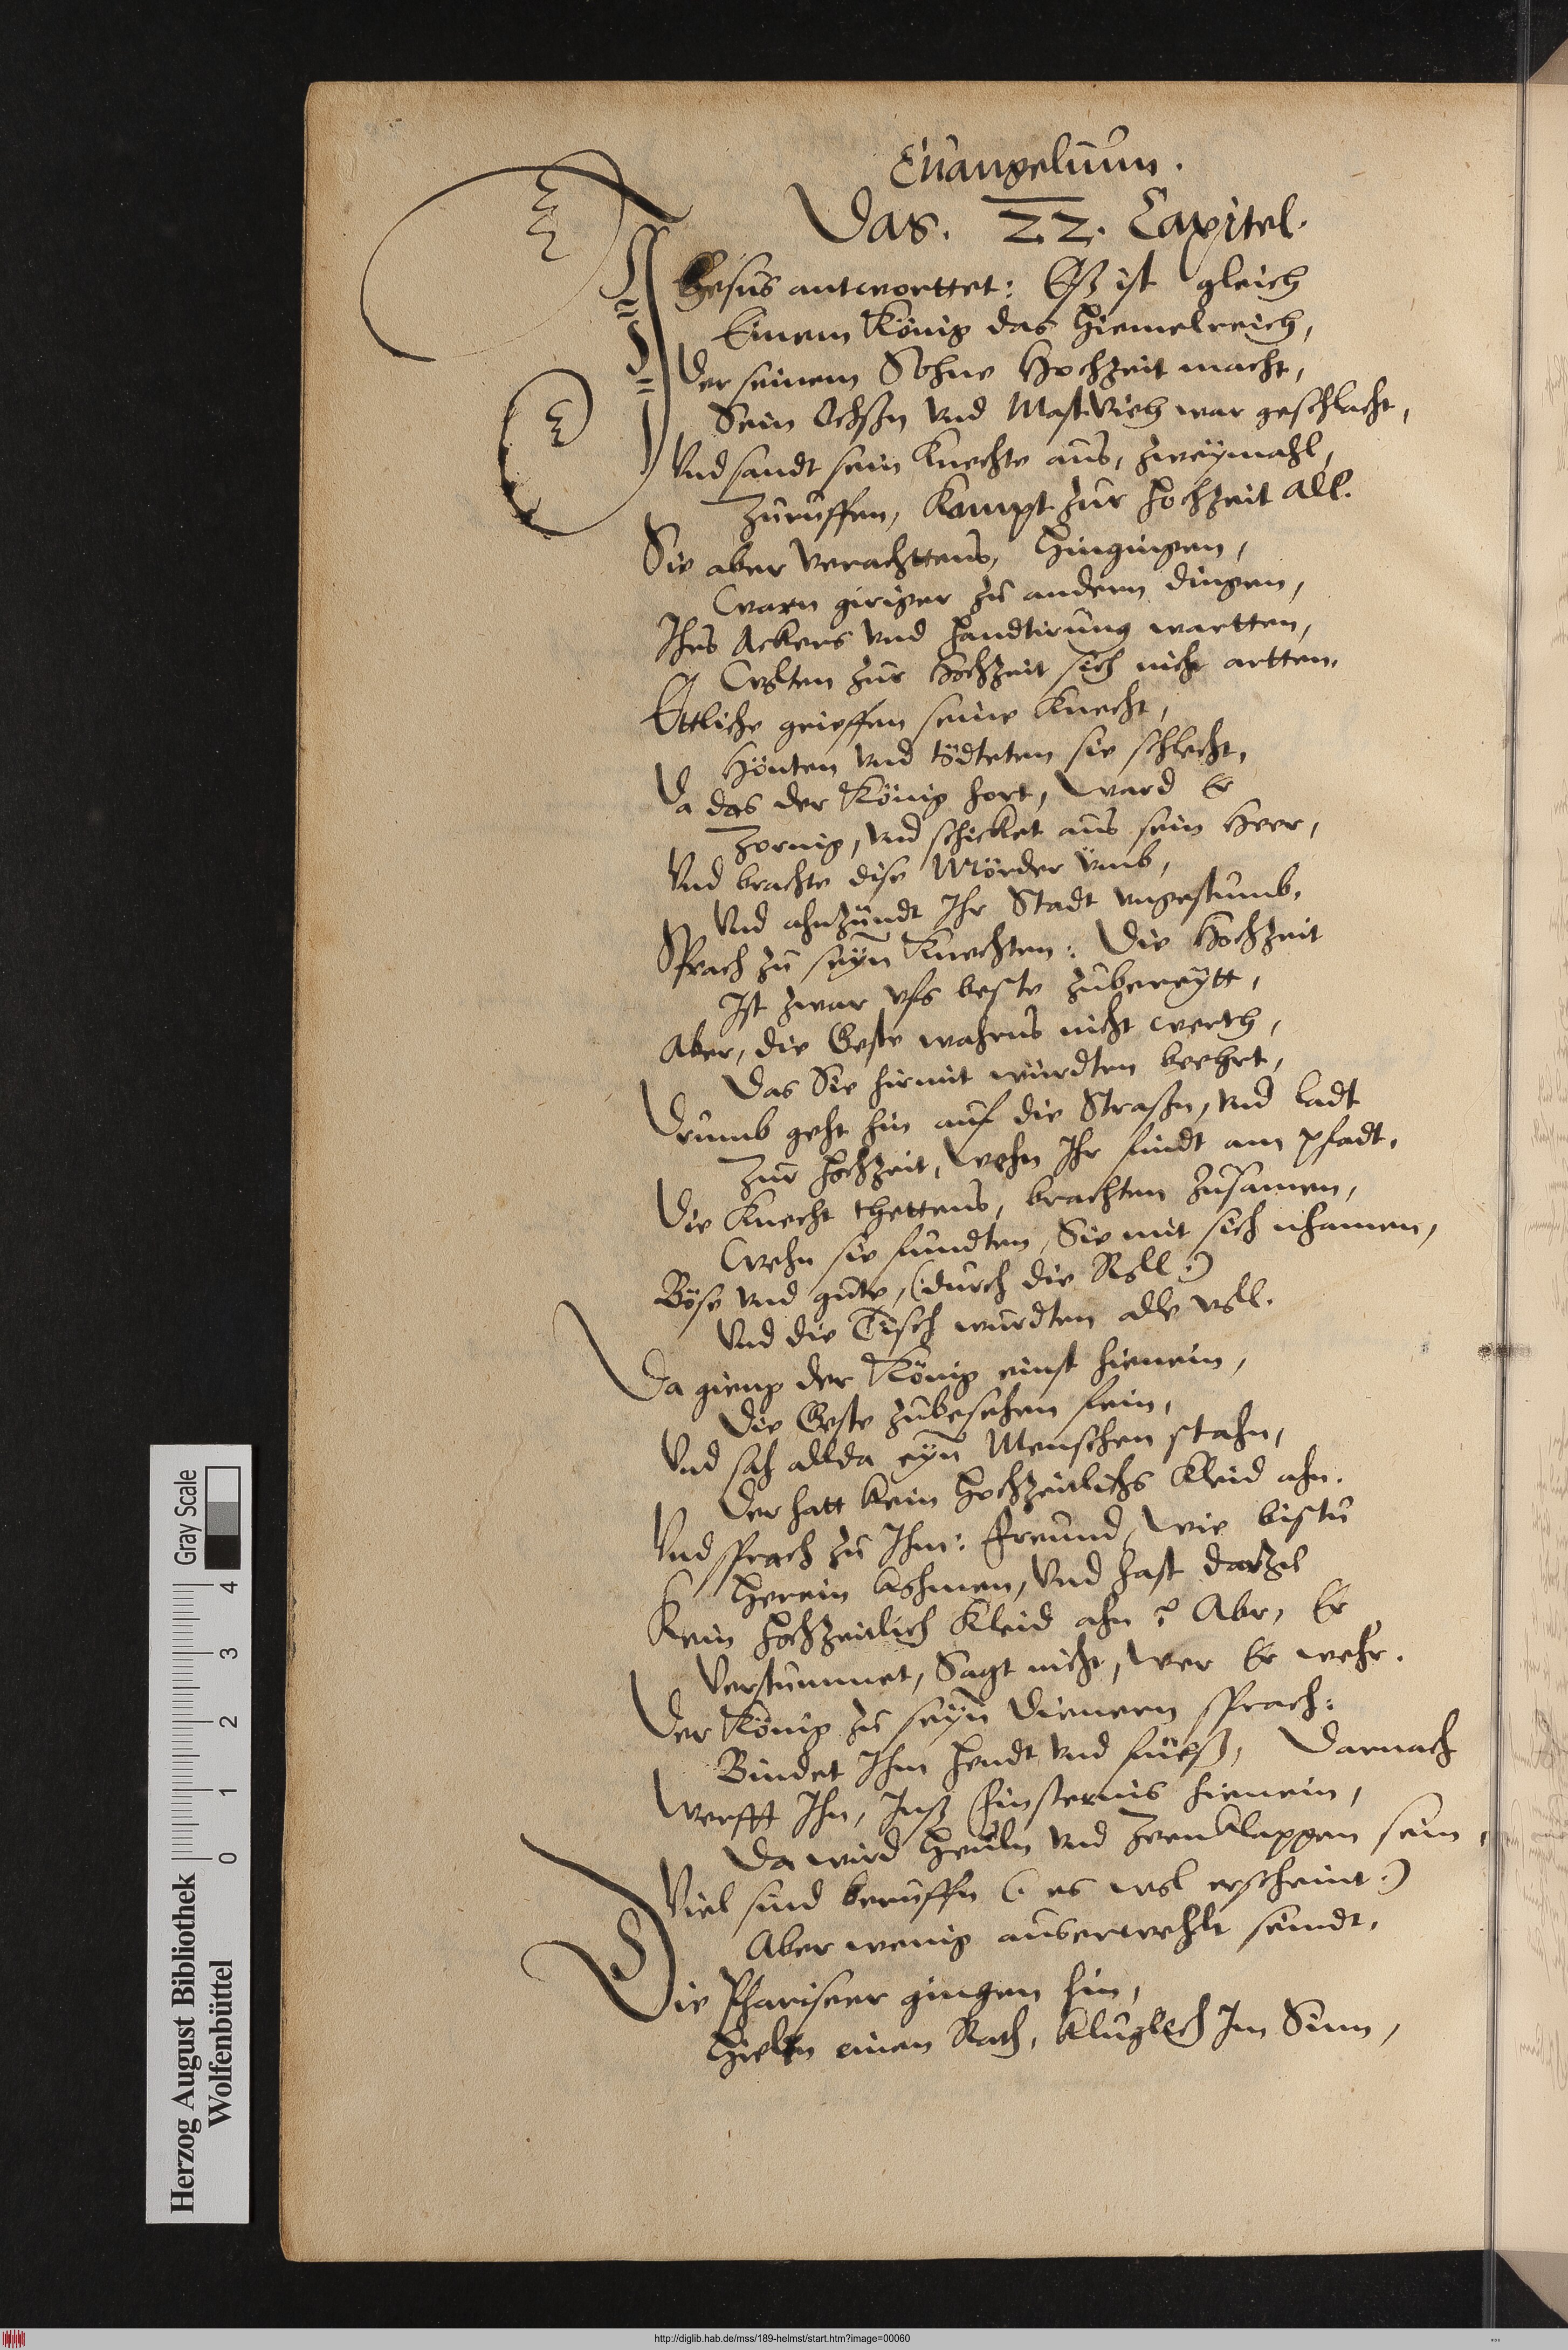 Euangelium.
Das. 22. Capitel.
Jhesus antworttet: Eß ist gleich
Einem König das Hiemelreich,
Der seinem Sohne Hochzeit macht,
Sein Ochßn vnd MastVieh war geschlacht,
Vnd sandt sein Knechte aus, zweÿmahl,
Zuruffen, Kompt zur Hochzeit all.
Sie aber verachttens, Hingingen,
Warn giriger zu andern dingen,
Ihrs Ackers vnd Handtirung wartten,
Wolten zur Hochzeit sich nicht artten.
Ettliche grieffen seine Knecht,
Hönten vnd tödteten sie schlecht,
Da das der König hort, ward Er
Zornig, vnd schicket aus sein Heer,
Vnd brachte dise Mörder ümb,
Vnd ahnzündt Ihr Stadt vngestumb.
Sprach zu seÿn Knechten: Die Hochzeit
Ist zwar vfs beste zubereÿtt,
Aber, die Geste wahrns nicht werth,
Das Sie hirmit würdten beehrt,
Drumb geht hin auf die Straßn, vnd ladt
Zur Hochzeit, wehn Ihr findt am pfadt.
Die Knecht thettens, brachten zusamen,
Wehn sie fundten, Sie mit sich nhamen,
Böse vnd gute, (:durch die Roll:)
Vnd die Tisch wurdten alle voll.
Da gieng der König einst hienein,
Die Geste zubesehen fein,
Vnd sah allda eÿn Menschen stahn,
Der hatt kein Hochzeitlichs Kleid ahn.
Vnd sprach zu Ihm: Freund, wie bistu
Herein kohmen, vnd hast darzu
Kein Hochzeitlich Kleid ahn? Abr, Er
Verstummet, Sagt nicht, wer Er wehr.
Der König zu seÿn Dienern sprach:
Bindet Ihm Hendt vnd füeß, Darnach
Werfft Ihn, Inß Finsternis hienein,
Da wird Heuln vnd Zeenklappen sein,
Viel sind beruffn (: es wol erscheint:)
Aber wenig auserwehlt seindt.
Die Phariseer gingen hin,
Hielten einen Rath, kluglich Im Sinn,
Herzog August Bibliothek
Wolfenbüttel
0 1 2 3 4
Gray Scale
http://diglib.hab.de/mss/189-helmst/start.htm?image=00060